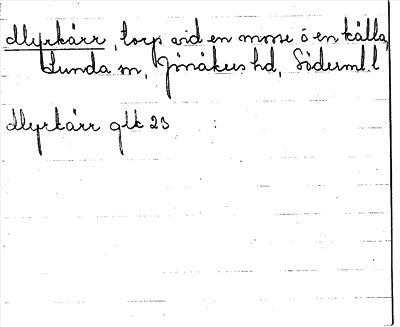 Myrkärr, torp vid en mosse o en källa,
Lunda sn, Jönåkers hd, Söderml l
Myrkärr glk 23 :